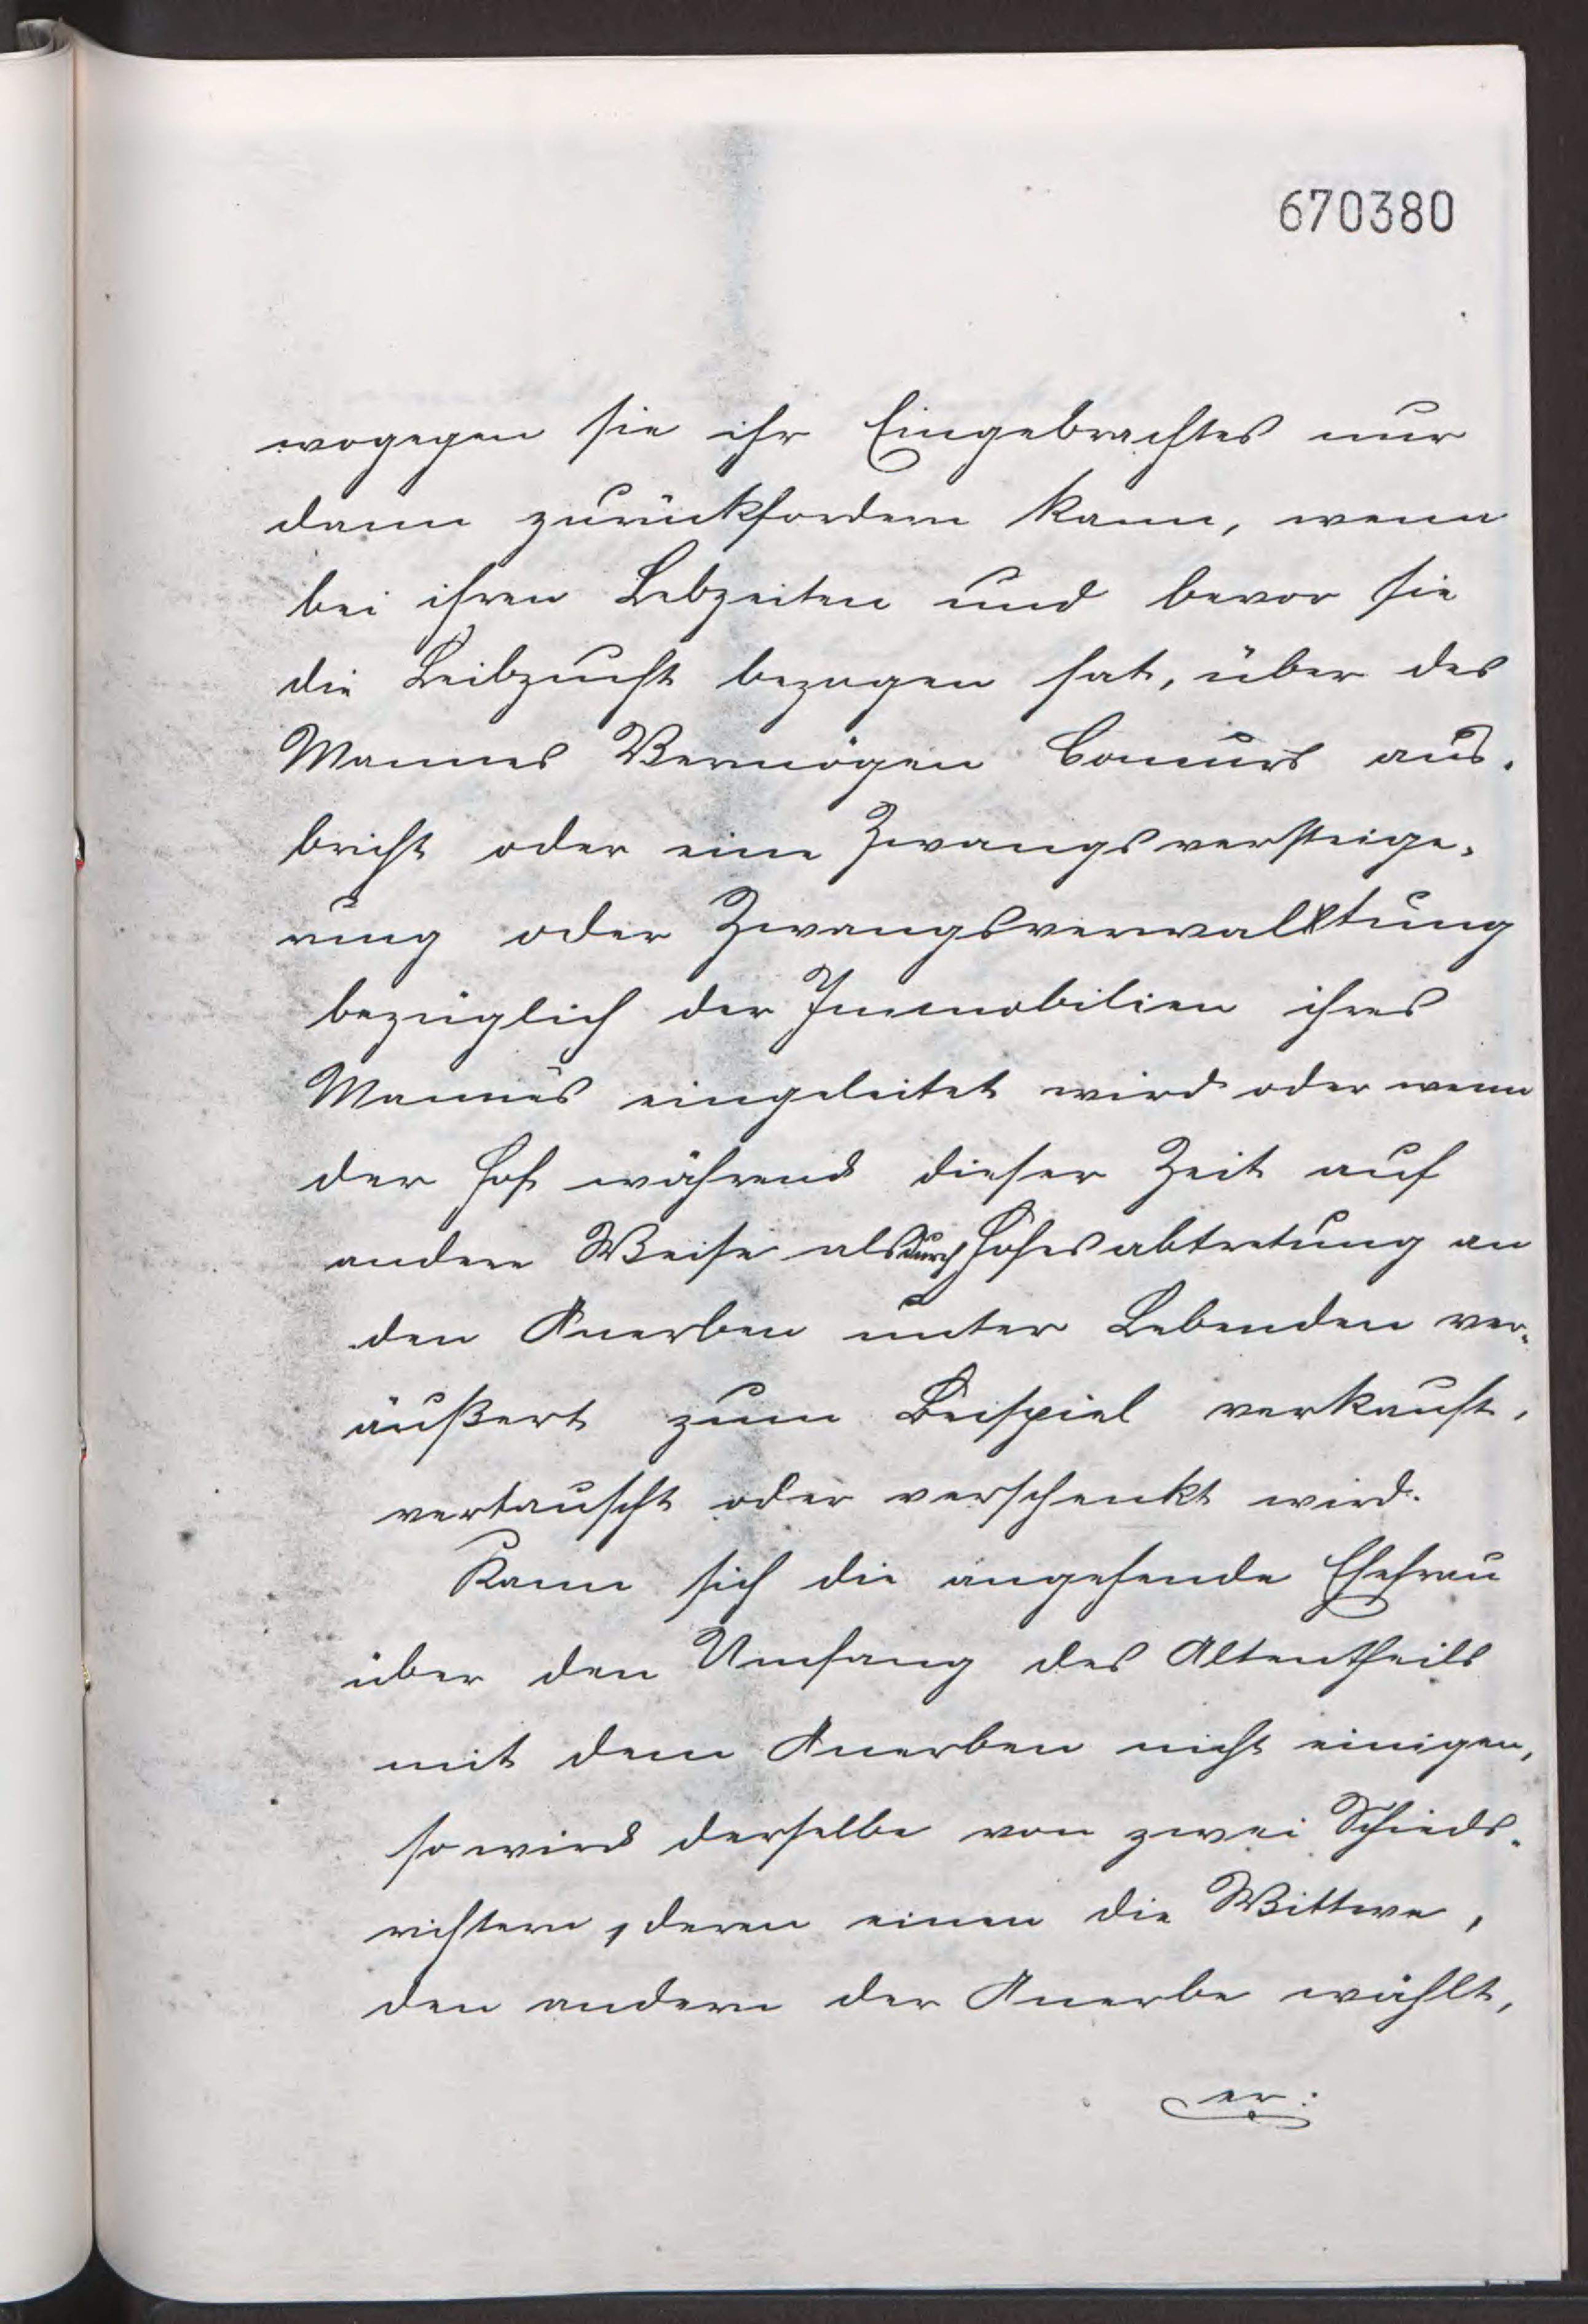 670380
wogegen sie ihr Eingebrachtes nur
dann zurückfordern kann, wenn
bei ihren Lebzeiten und bevor sie
die Leibzucht bezogen hat, über des
Mannes Vermögen Concurs aus-
bricht oder eine Zwangsversteige-
rung oder Zwangsverwaltung
bezüglich der Immobilien ihres
Mannes eingeleitet wird oder wenn
der Hof während dieser Zeit auf
andere Weise als durch Hofesabtretung an
den Anerben unter Lebenden ver-
äußert zum Beispiel verkauft,
vertauscht oder verschenkt wird.
Kann sich die angehende Ehefrau
über den Umfang des Altentheils
mit dem Anerben nicht einigen,
so wird derselbe von zwei Schieds-
richtern, deren einen die Wittwe,
den andern der Anerbe wählt,
er: